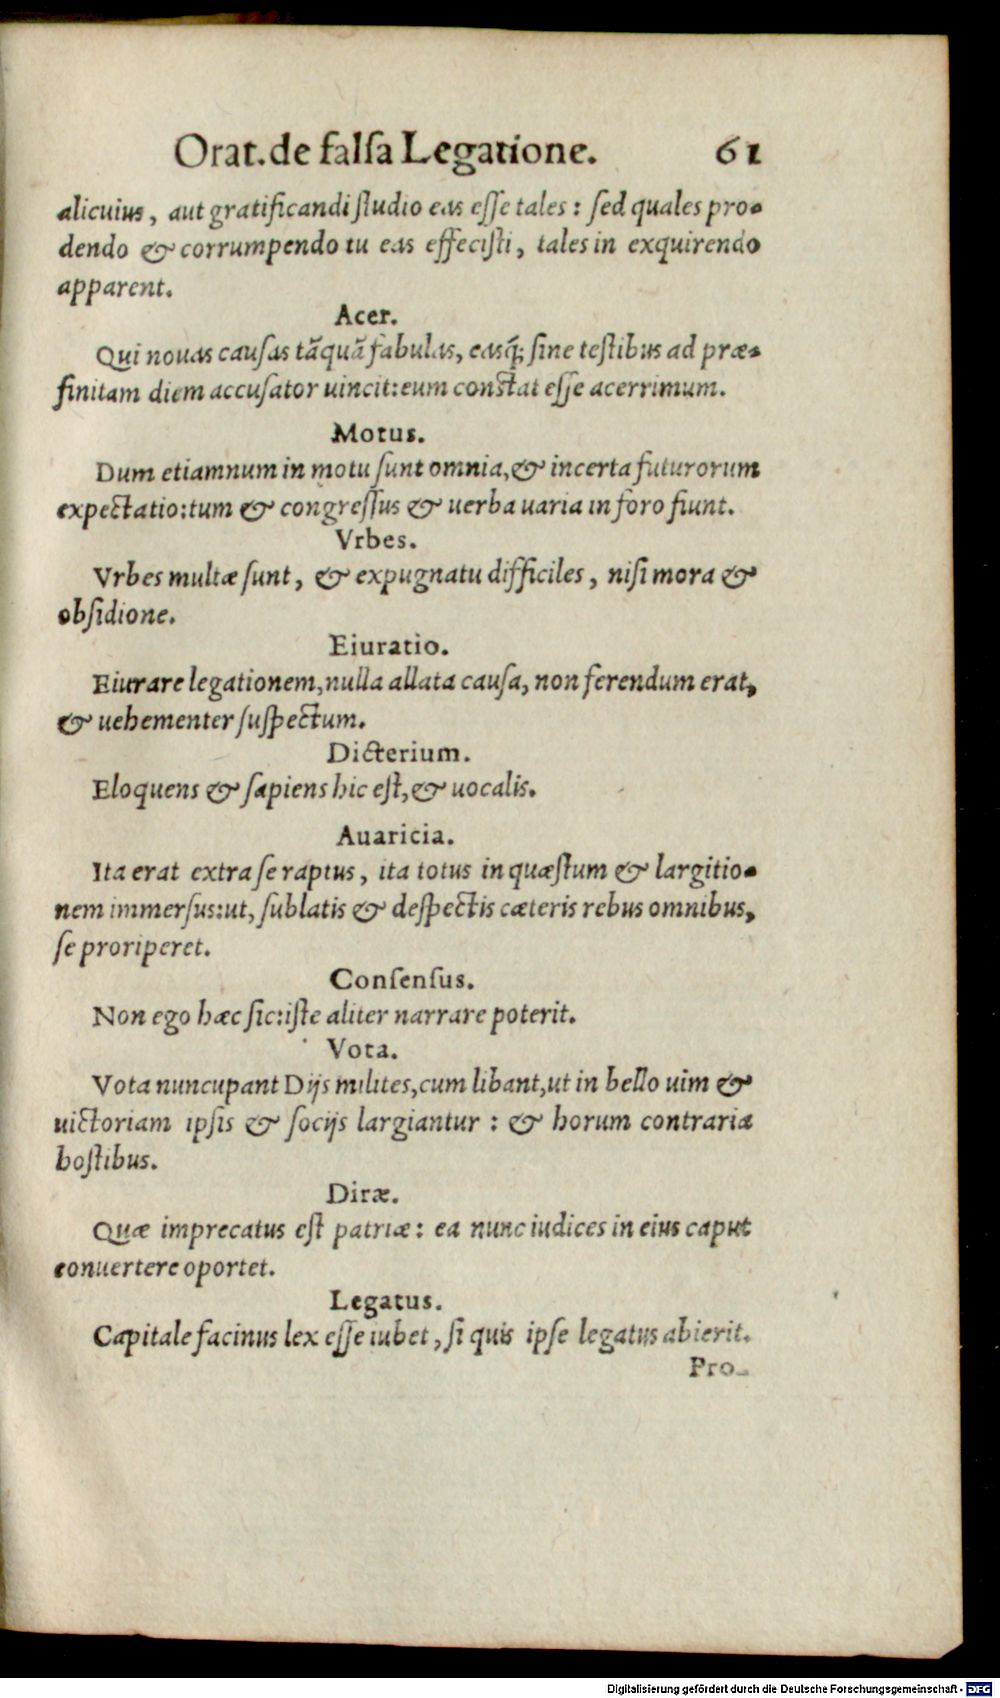 Orat. de falſa Legatione. 61
alicuius, aut gratificandi ſtudio eas eſſe tales: ſed quales pro-
dendo & corrumpendo tu eas effeciſti, tales in exquirendo
apparent.
Acer.
Qui nouas cauſas tãquã fabulas, easq́; ſine teſtibus ad præ-
finitam diem accuſator uincit: eum conſtat eſſe acerrimum.
Motus.
Dum etiamnum in motu ſunt omnia, & incerta futurorum
expectatio: tum & congreſſus & uerba uaria in foro fiunt.
Vrbes.
Vrbes multæ ſunt, & expugnatu difficiles, niſi mora &
obſidione.
Eiuratio.
Eiurare legationem, nulla allata cauſa, non ferendum erat,
& uehementer ſuſpectum.
Dicterium.
Eloquens & ſapiens hic eſt, & uocalis.
Auaricia.
Ita erat extra ſe raptus, ita totus in quæſtum & largitio-
nem immerſus: ut, ſublatis & deſpectis cæteris rebus omnibus,
ſe proriperet.
Conſenſus.
Non ego hæc ſic: iſte aliter narrare poterit.
Vota.
Vota nuncupant Dijs milites, cum libant, ut in bello uim &
uictoriam ipſis & ſocijs largiantur: & horum contraria
hoſtibus.
Diræ.
Quæ imprecatus eſt patriæ: ea nunc iudices in eius caput
conuertere oportet.
Legatus.
Capitale facinus lex eſſe iubet, ſi quis ipſe legatus abierit.
Pro-
Digitalisierung gefördert durch die Deutsche Forschungsgemeinschaft - DFG